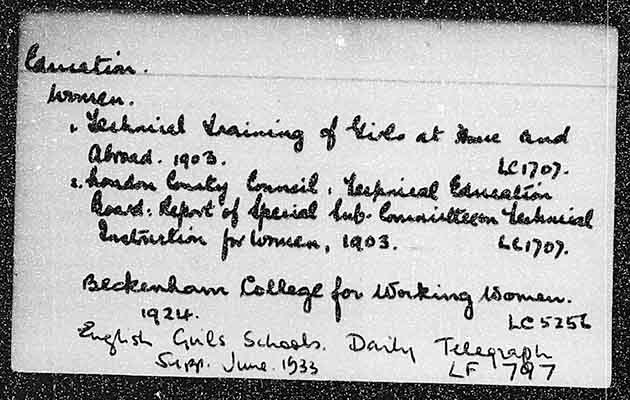 Education.
Women.
1. Technical Training of Girls at Home and
Abroad. 1903. LC1707.
2. London County Council, Technical Education
Board: Report of Special Sub-Committee on Technical
Instruction for Women, 1903. LC1707.
Beckenham College for Working Women.
1924. LC5256
English Girls Schools. Daily Telegraph
Supp. June. 1933 LF 797